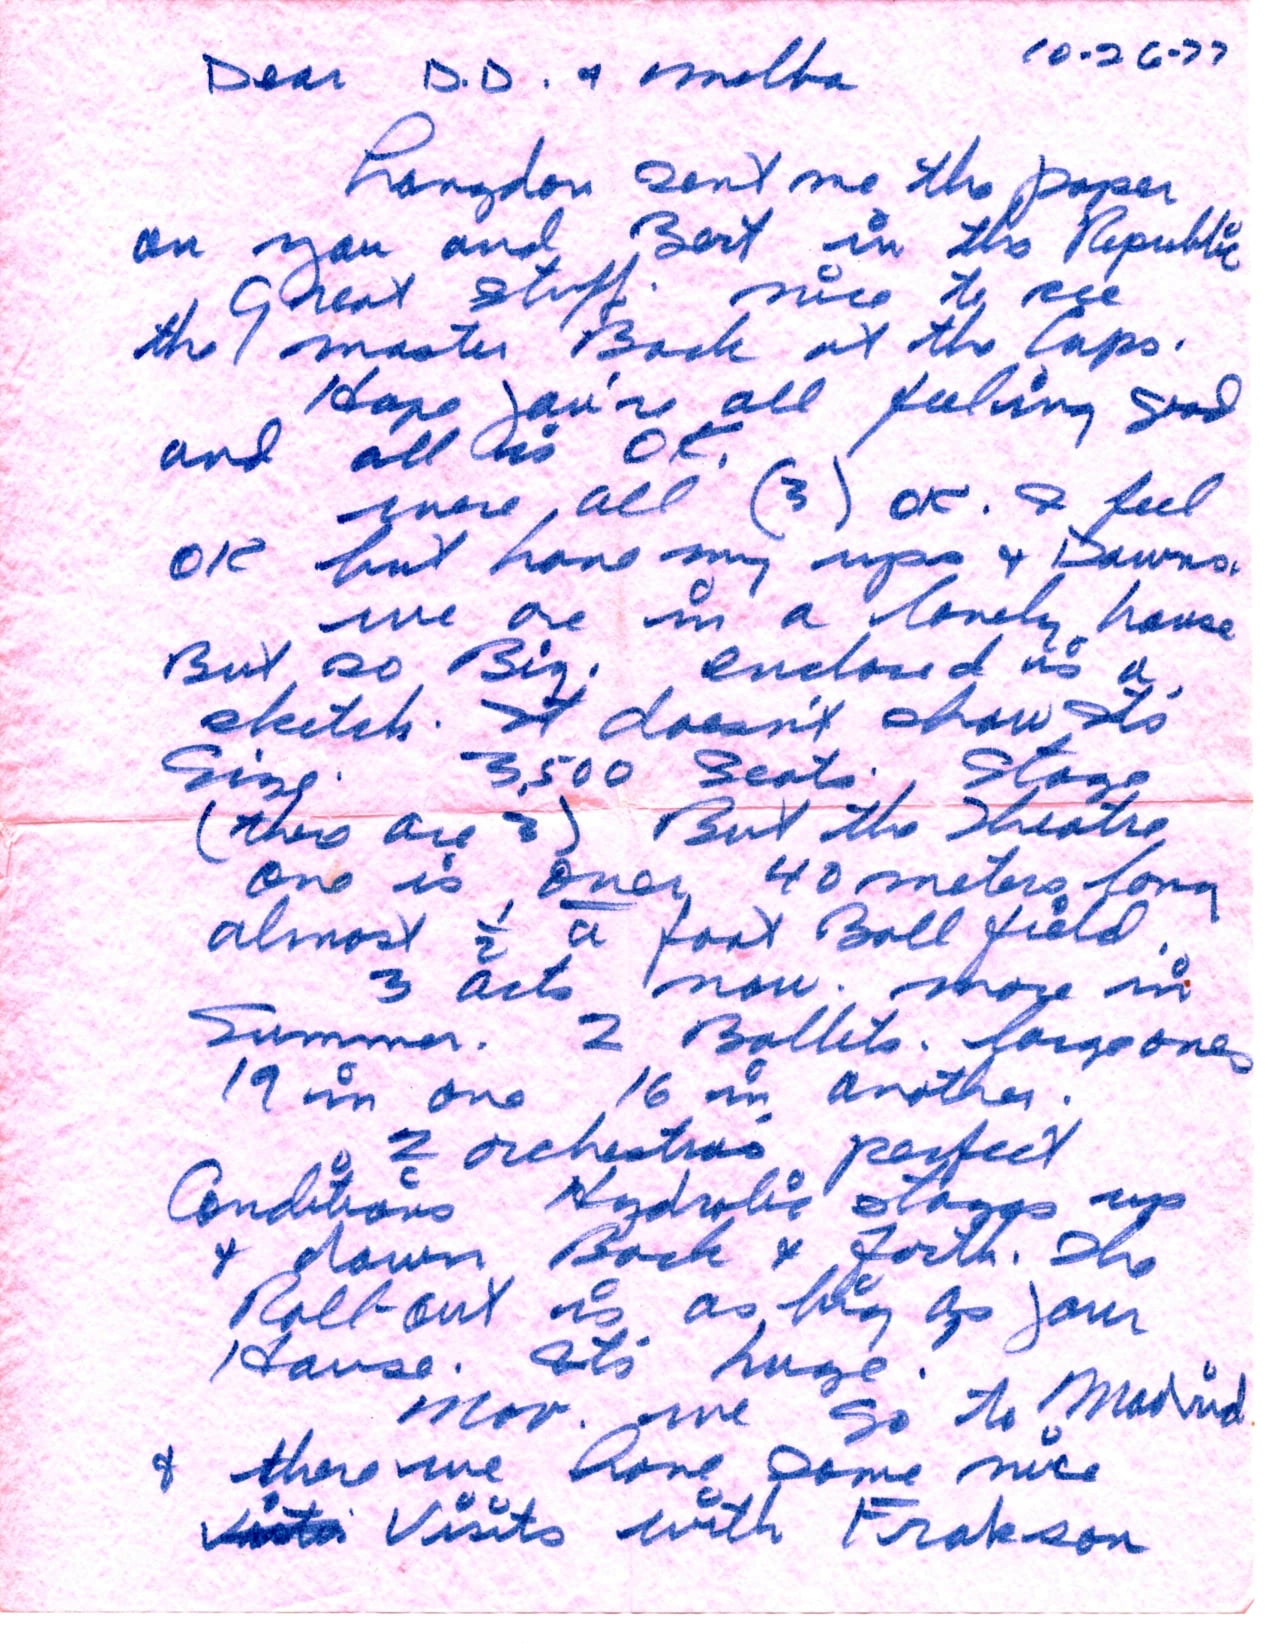 10-26-77
Dear D.D. & Melba
Langdon sent me the paper
on you and Bert in the Republic
Great stuff. nice to see
the master Back at the Cups.
Hope you're all feeling good
and all is OK.
were all (3) OK. I feel
OK but have my ups & Downs.
we are in a lovely house
But so Big. enclosed is a
sketch. It doesn't show its
Size. 3,500 Seats. Stage
(there are 2) But the theatre
one is over 40 meters long
almost ½ a foot Ball field.
3 acts now. more in
Summer. 2 Ballets. large ones
19 in one 16 in another.
2 orchestras perfect
Conditions Hydrolic stages up
& down Back & forth. The
Roll-out is as big as your
House. Its huge.
Mar. we go to Madrid
& there we have some nice
Visits with Frakson